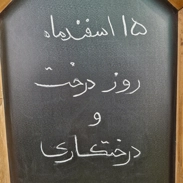 ۱۵ اسفندماه
روز درخت
و
درختکاری